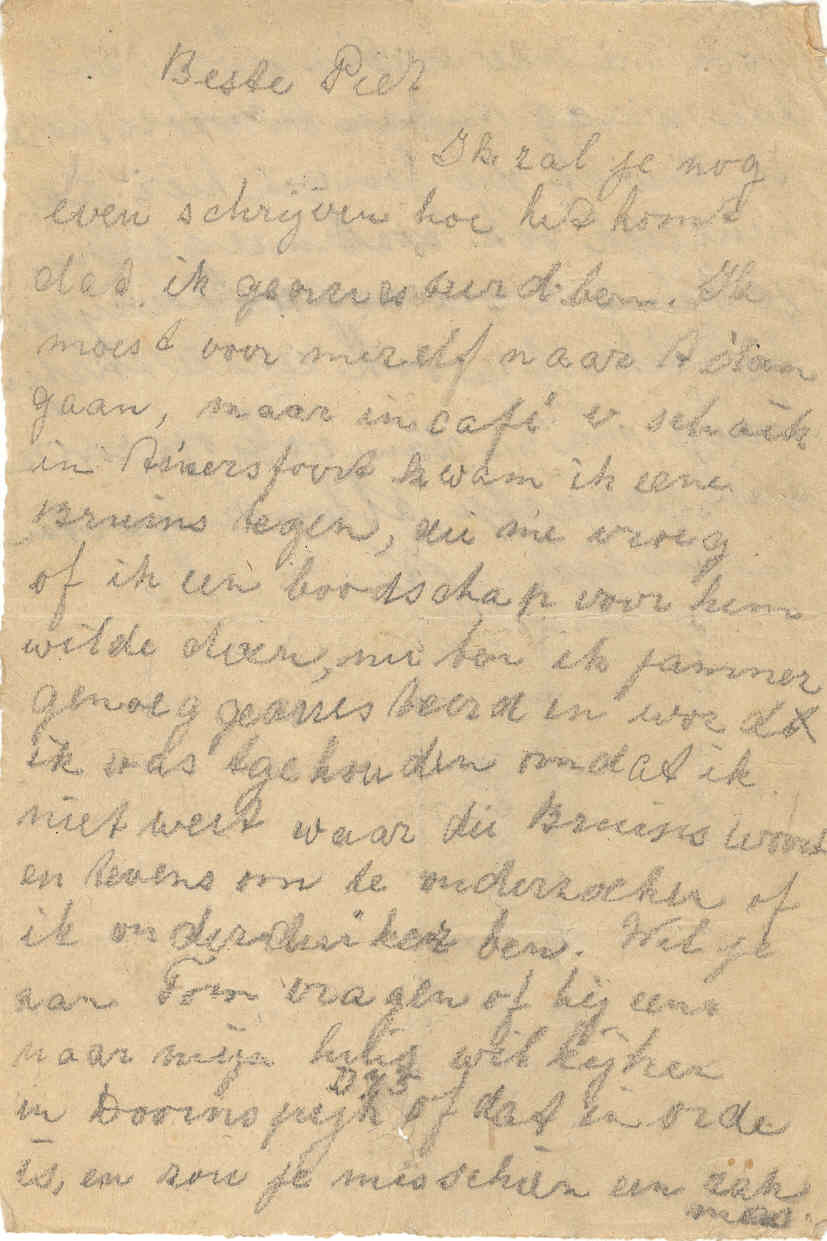 Beste Pier
Ik zal je nog
even schrijven hoe het komt
dat ik gearresteerd ben. Ik
moest voor mezelf naar A'dam
gaan, maar in café v. Schaik
in Amersfoort kwam ik eene
Bruins tegen, die me vroeg
of ik een boodschap voor hem
wilde doen, nu ben ik jammer
genoeg gearresteerd en word
ik vastgehouden omdat ik
niet weet waar die Bruins woont
en tevens om te onderzoeken of
ik onderduiker ben. Wil je
aan Tom vragen of hij eens
naar mijn huis wil kijken
D 75
in Doornspijk of dat in orde
is, en zou je misschien een zak
mes